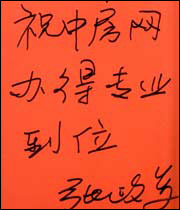 祝中房网
办得专业
到位